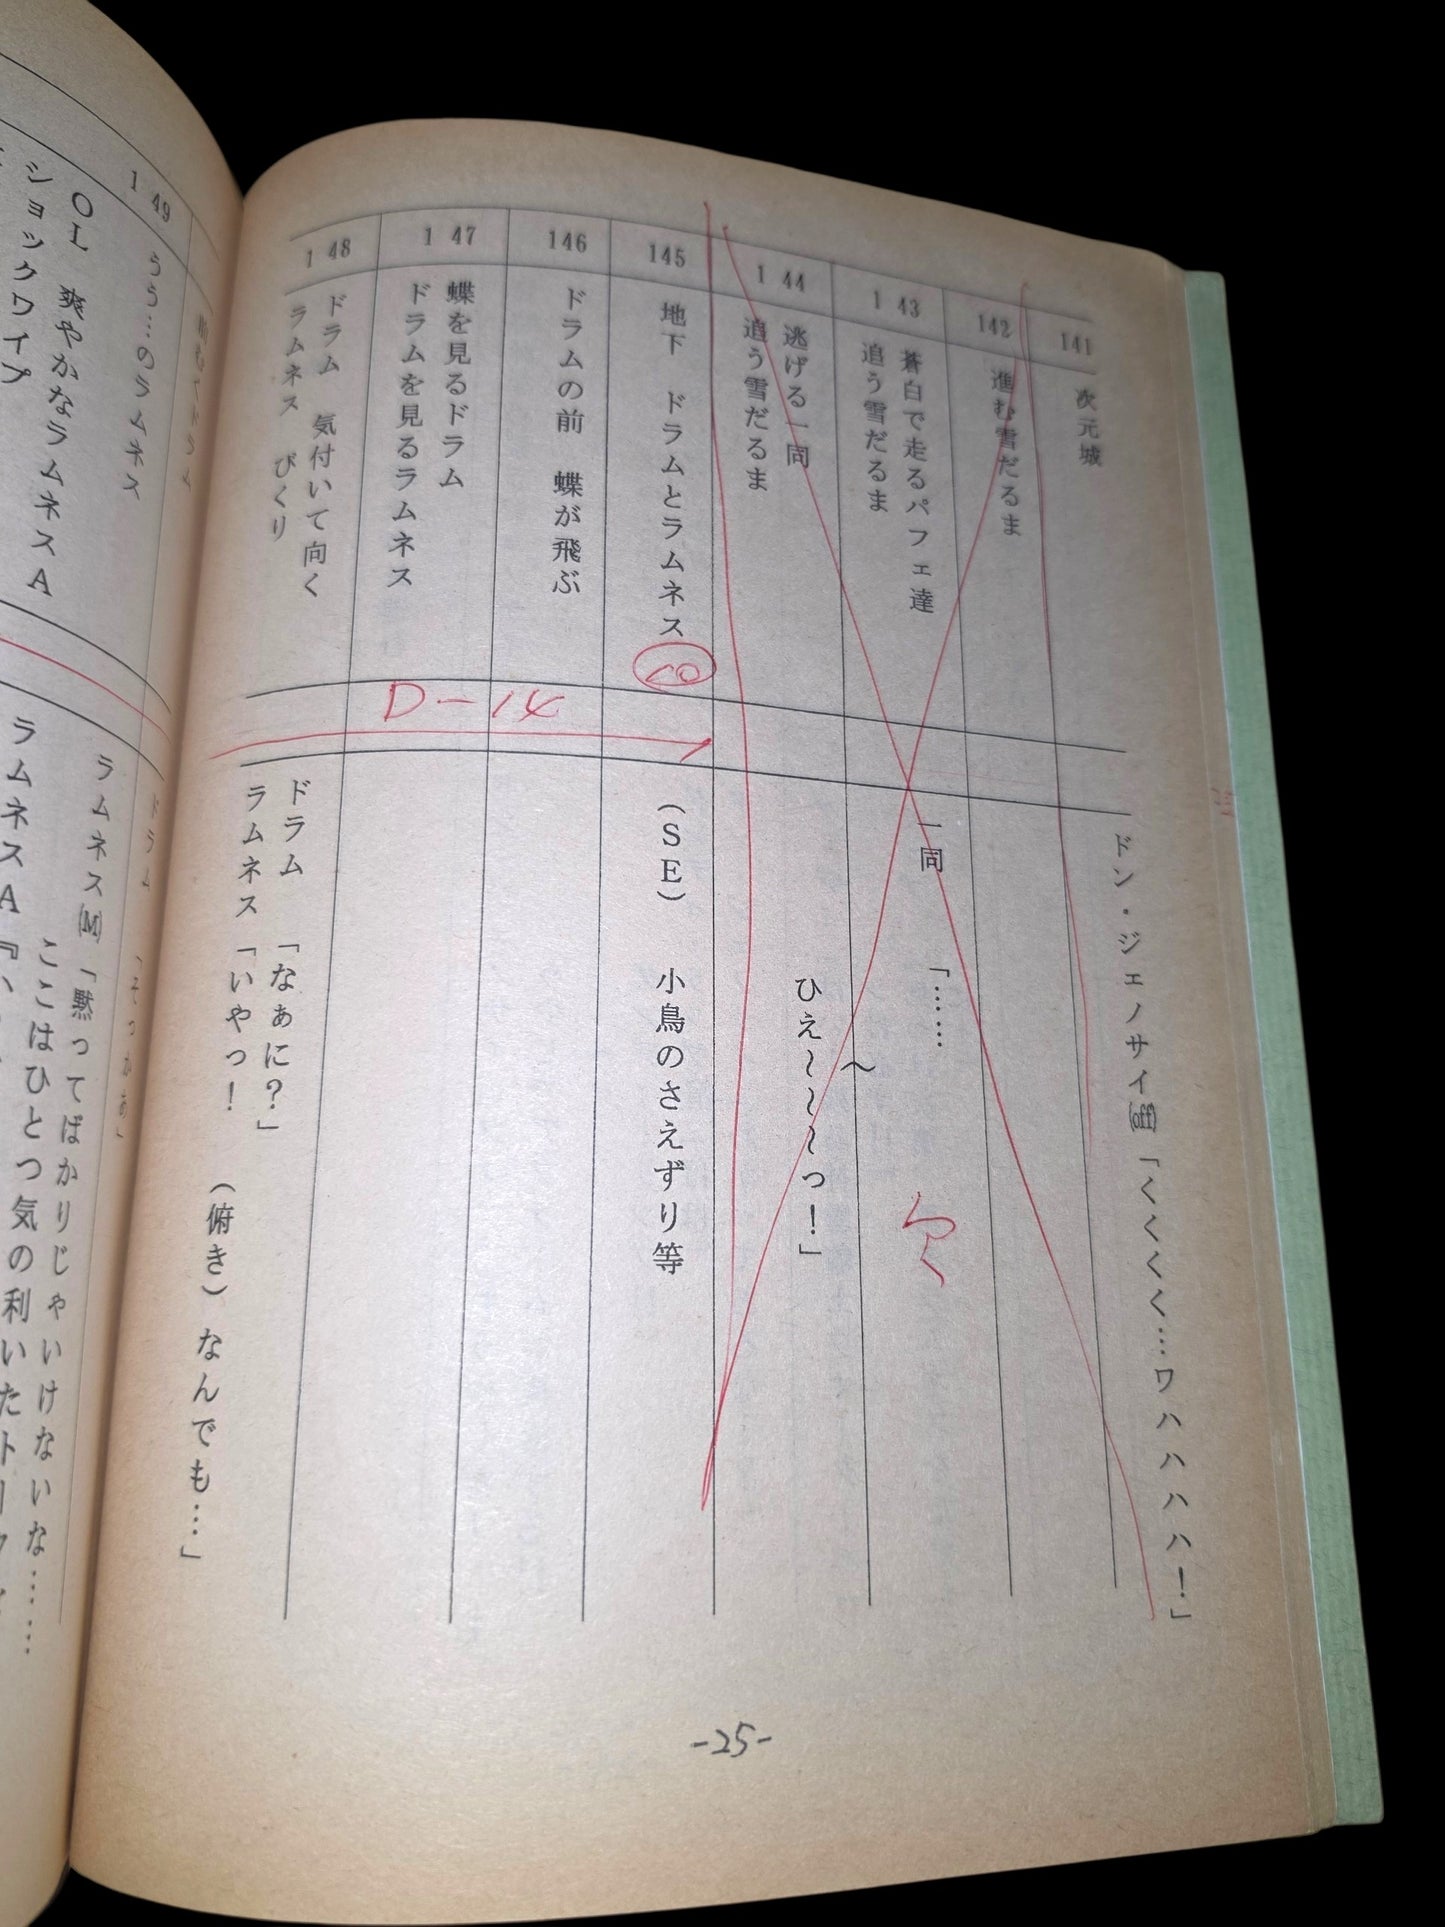 141
次元城
ドン・ジェノサイ「くくくく…ワハハハハ！」
142
進む雪だるま
143
蒼白で走るパフェ達
追う雪だるま
一同「……
144
逃げる一同
追う雪だるま
ひえ～～～～っ！」
欠
145
地下　ドラムとラムネス
(SE)　小鳥のさえずり等
146
ドラムの前　蝶が飛ぶ
D-14
147
蝶を見るドラム
ドラムを見るラムネス
148
ドラム　気付いて向く
ラムネス　びくり
ドラム「なぁに？」
ラムネス「いやっ！　(俯き)なんでも…」
-25-
ドラム「そっかぁ」
149
うう…のラムネス
ラムネス(M)「黙ってばかりじゃいけないな……
ここはひとつ気の利いたト
OL　爽やかなラムネスA
ショックワイプ
ラムネスA『